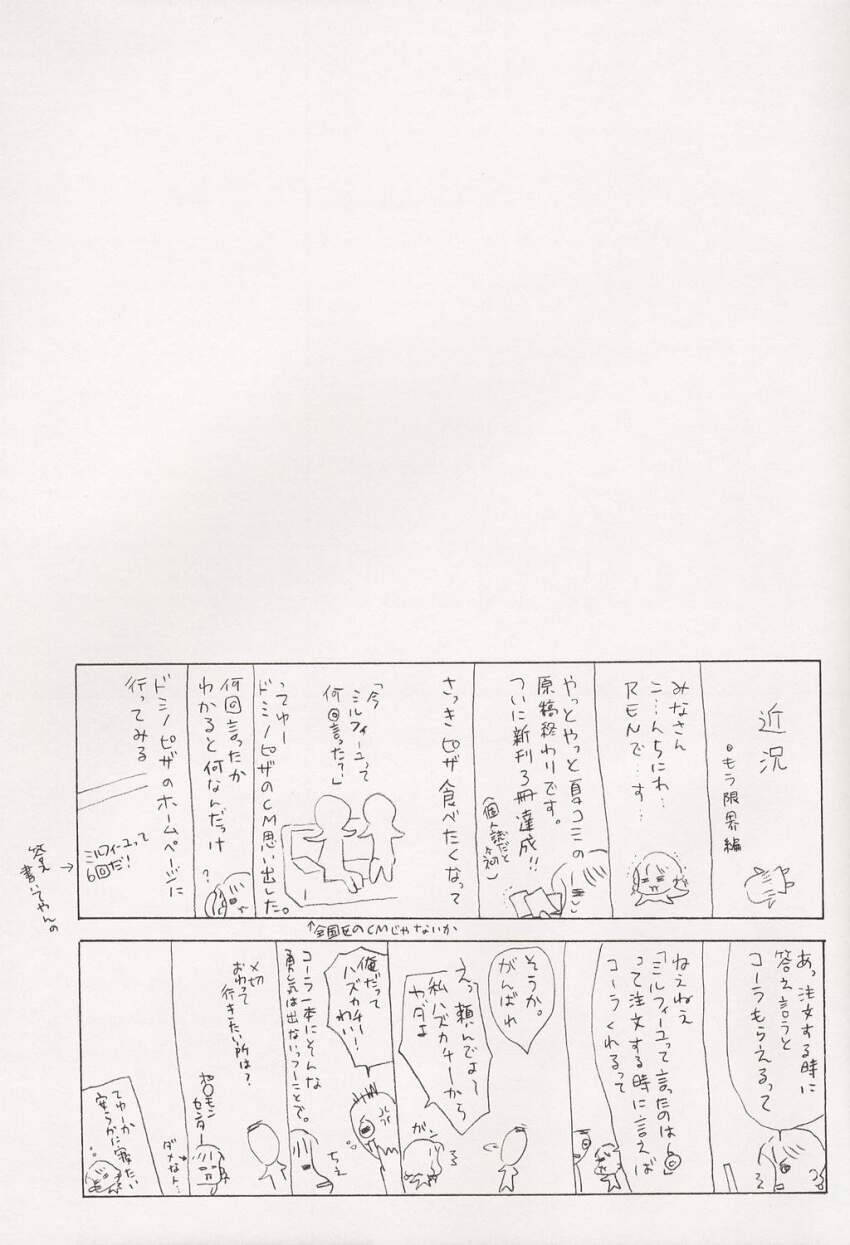 近況
もう限界編
みなさん
こ…んちにわ…
RENで…す…
やっとやっと夏コミの
原稿終わりです。
ついに新刊3冊達成!!
さっきピザ食べたくなって
「今
ミルフィーユって
何回言った?」
ってゆー
ドミノピザのCM思い出した。
↑全国区のCMじゃないか
何回言ったか
わかると何なんだっけ
?
ドミノピザのホームページに
行ってみる
ミルフィーユって
6回だ!
答え→
書いてやんの
あっ注文する時に
答え言うと
コーラもらえるって
ねえねえ
「ミルフィーユって言ったのは6回」
って注文する時に言えば
コーラくれるって
そうか。
がんばれ
えっ頼んでよ〜
私ハズカチーから
ヤダよ
ガーン
俺だって
ハズカチー!
わい!
コーラ一本にそんな
勇気は出ないっつーことで。
ちぇ
〆切
おわって
行きたい所は?
センター
ダメなト…
てゆーか
安らかに寝たい